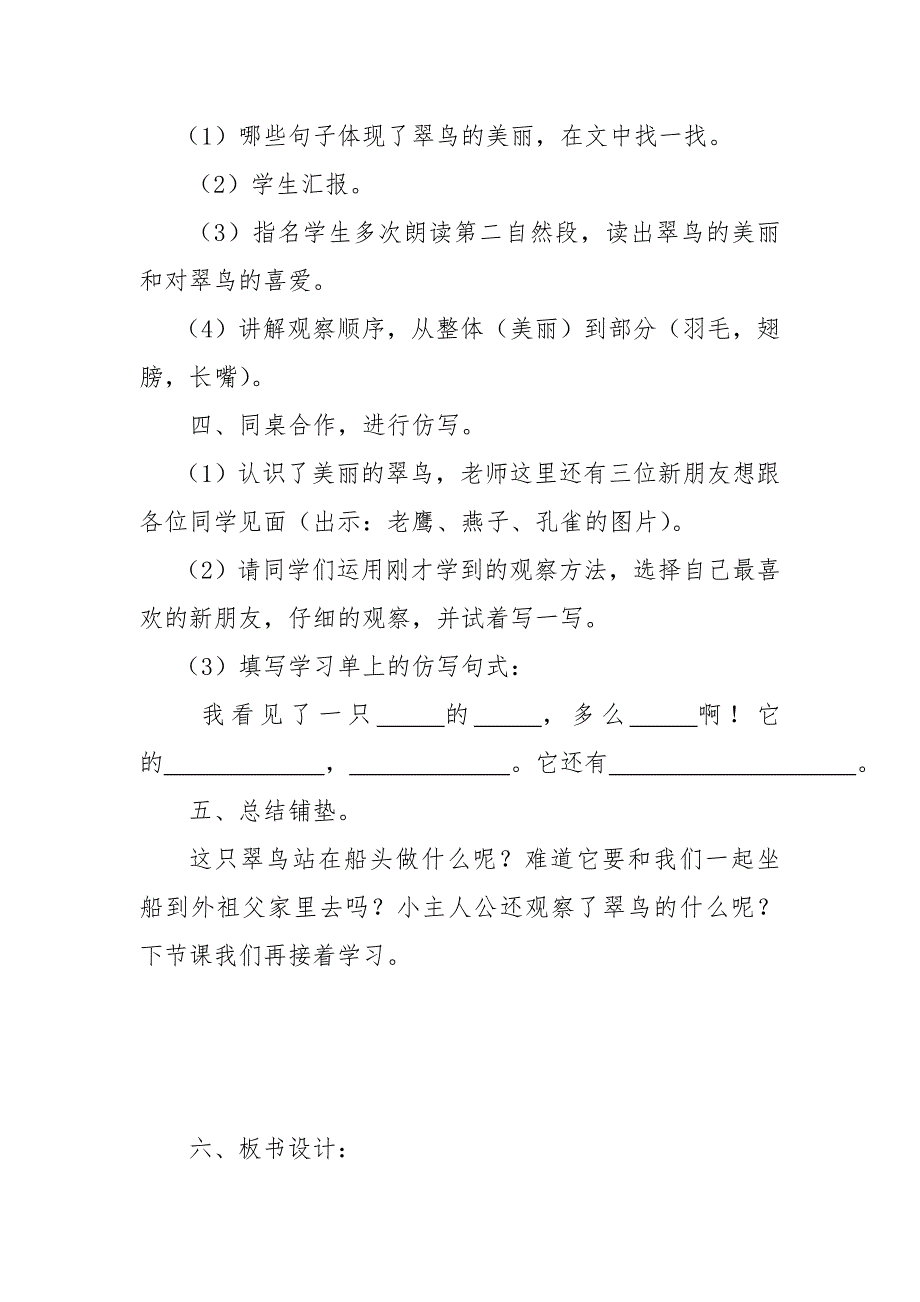 （1）哪些句子体现了翠鸟的美丽，在文中找一找。
（2）学生汇报。
（3）指名学生多次朗读第二自然段，读出翠鸟的美丽
和对翠鸟的喜爱。
（4）讲解观察顺序，从整体（美丽）到部分（羽毛，翅
膀，长嘴）。
四、同桌合作，进行仿写。
（1）认识了美丽的翠鸟，老师这里还有三位新朋友想跟
各位同学见面（出示：老鹰、燕子、孔雀的图片）。
（2）请同学们运用刚才学到的观察方法，选择自己最喜
欢的新朋友，仔细的观察，并试着写一写。
（3）填写学习单上的仿写句式：
我看见了一只_____的_____，多么_____啊！它
的____________，____________。它还有__________________。
五、总结铺垫。
这只翠鸟站在船头做什么呢？难道它要和我们一起坐
船到外祖父家里去吗？小主人公还观察了翠鸟的什么呢？
下节课我们再接着学习。
六、板书设计：